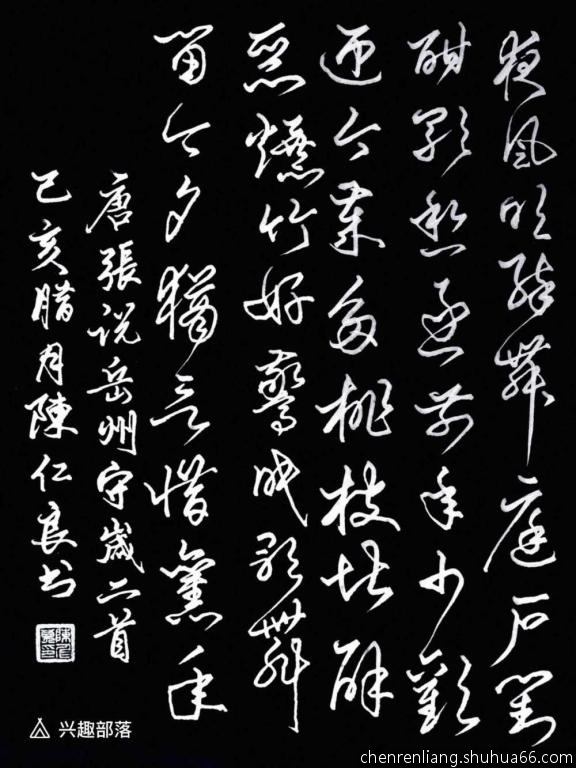 夜風吹醉舞庭戶對
酣歌愁逐前年少歡
迎今歲多桃枝堪辟
惡爆竹好驚眠歌舞
留今夕猶言惜舊年
唐張說岳州守歲二首
己亥腊月陳仁良书
兴趣部落
chenrenliang.shuhua66.com